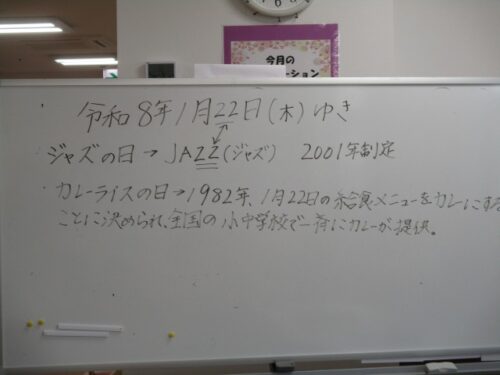 今月の
ーション
令和8年1月22日(木)ゆき
ジャズの日→JAZZ(ジャズ) 2001年制定
カレーライスの日→1982年、1月22日の給食メニューをカレーにする
ことに決められ、全国の小中学校で一斉にカレーが提供。